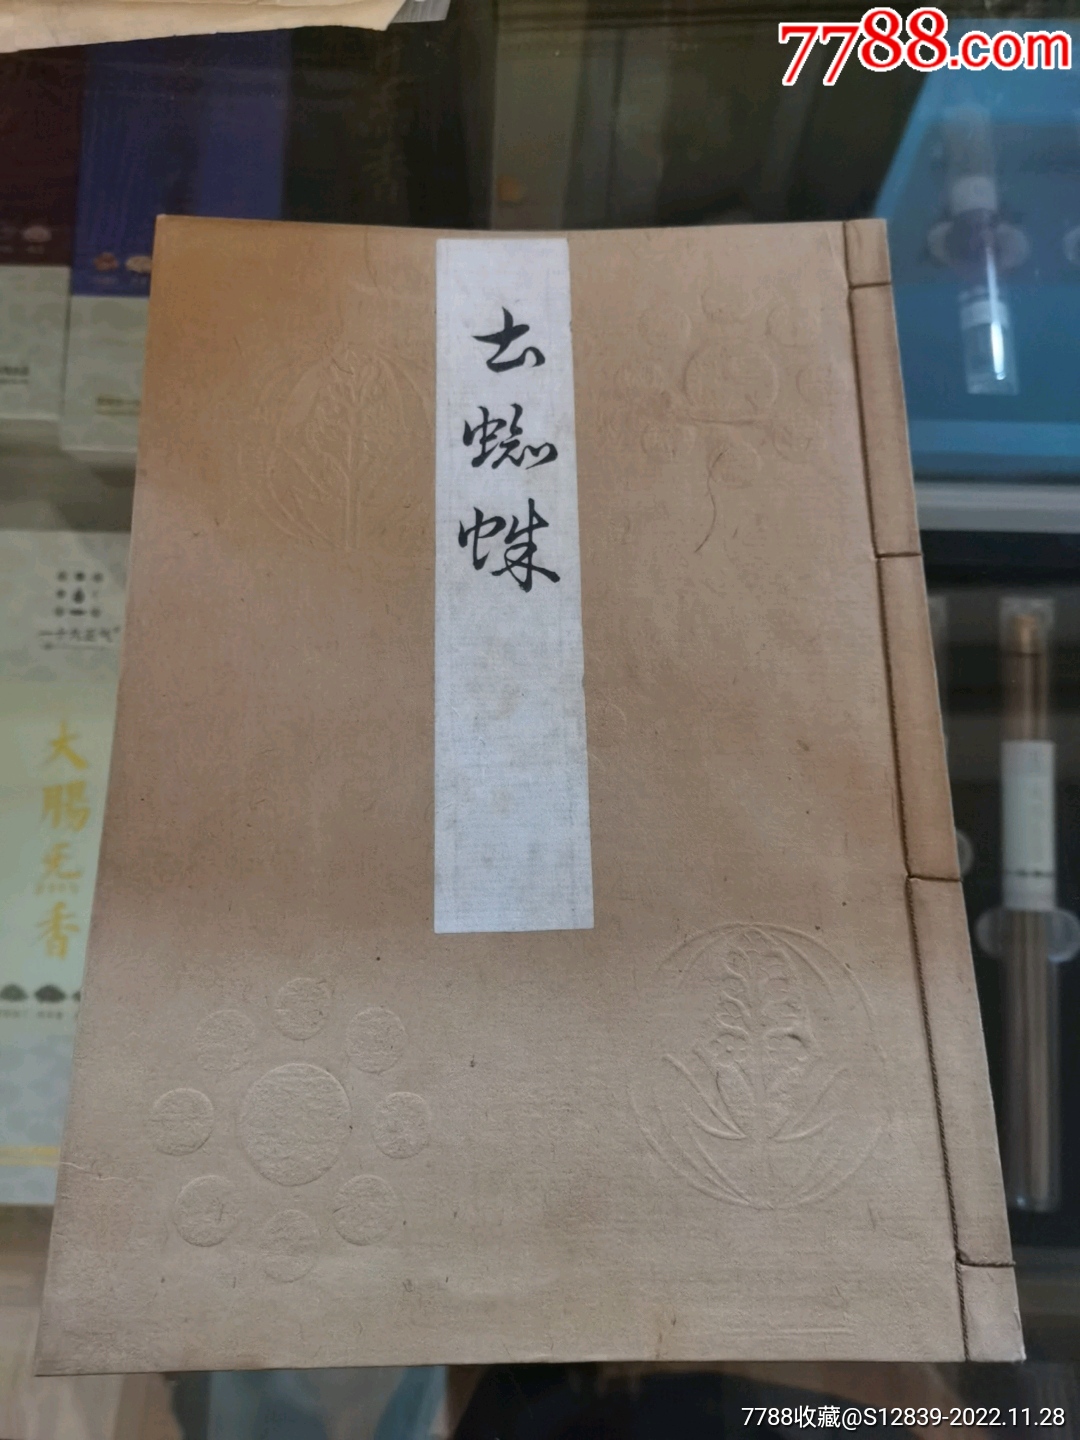 7788.com
土蜘蛛
大腸炁香
7788收藏@S12839-2022.11.28